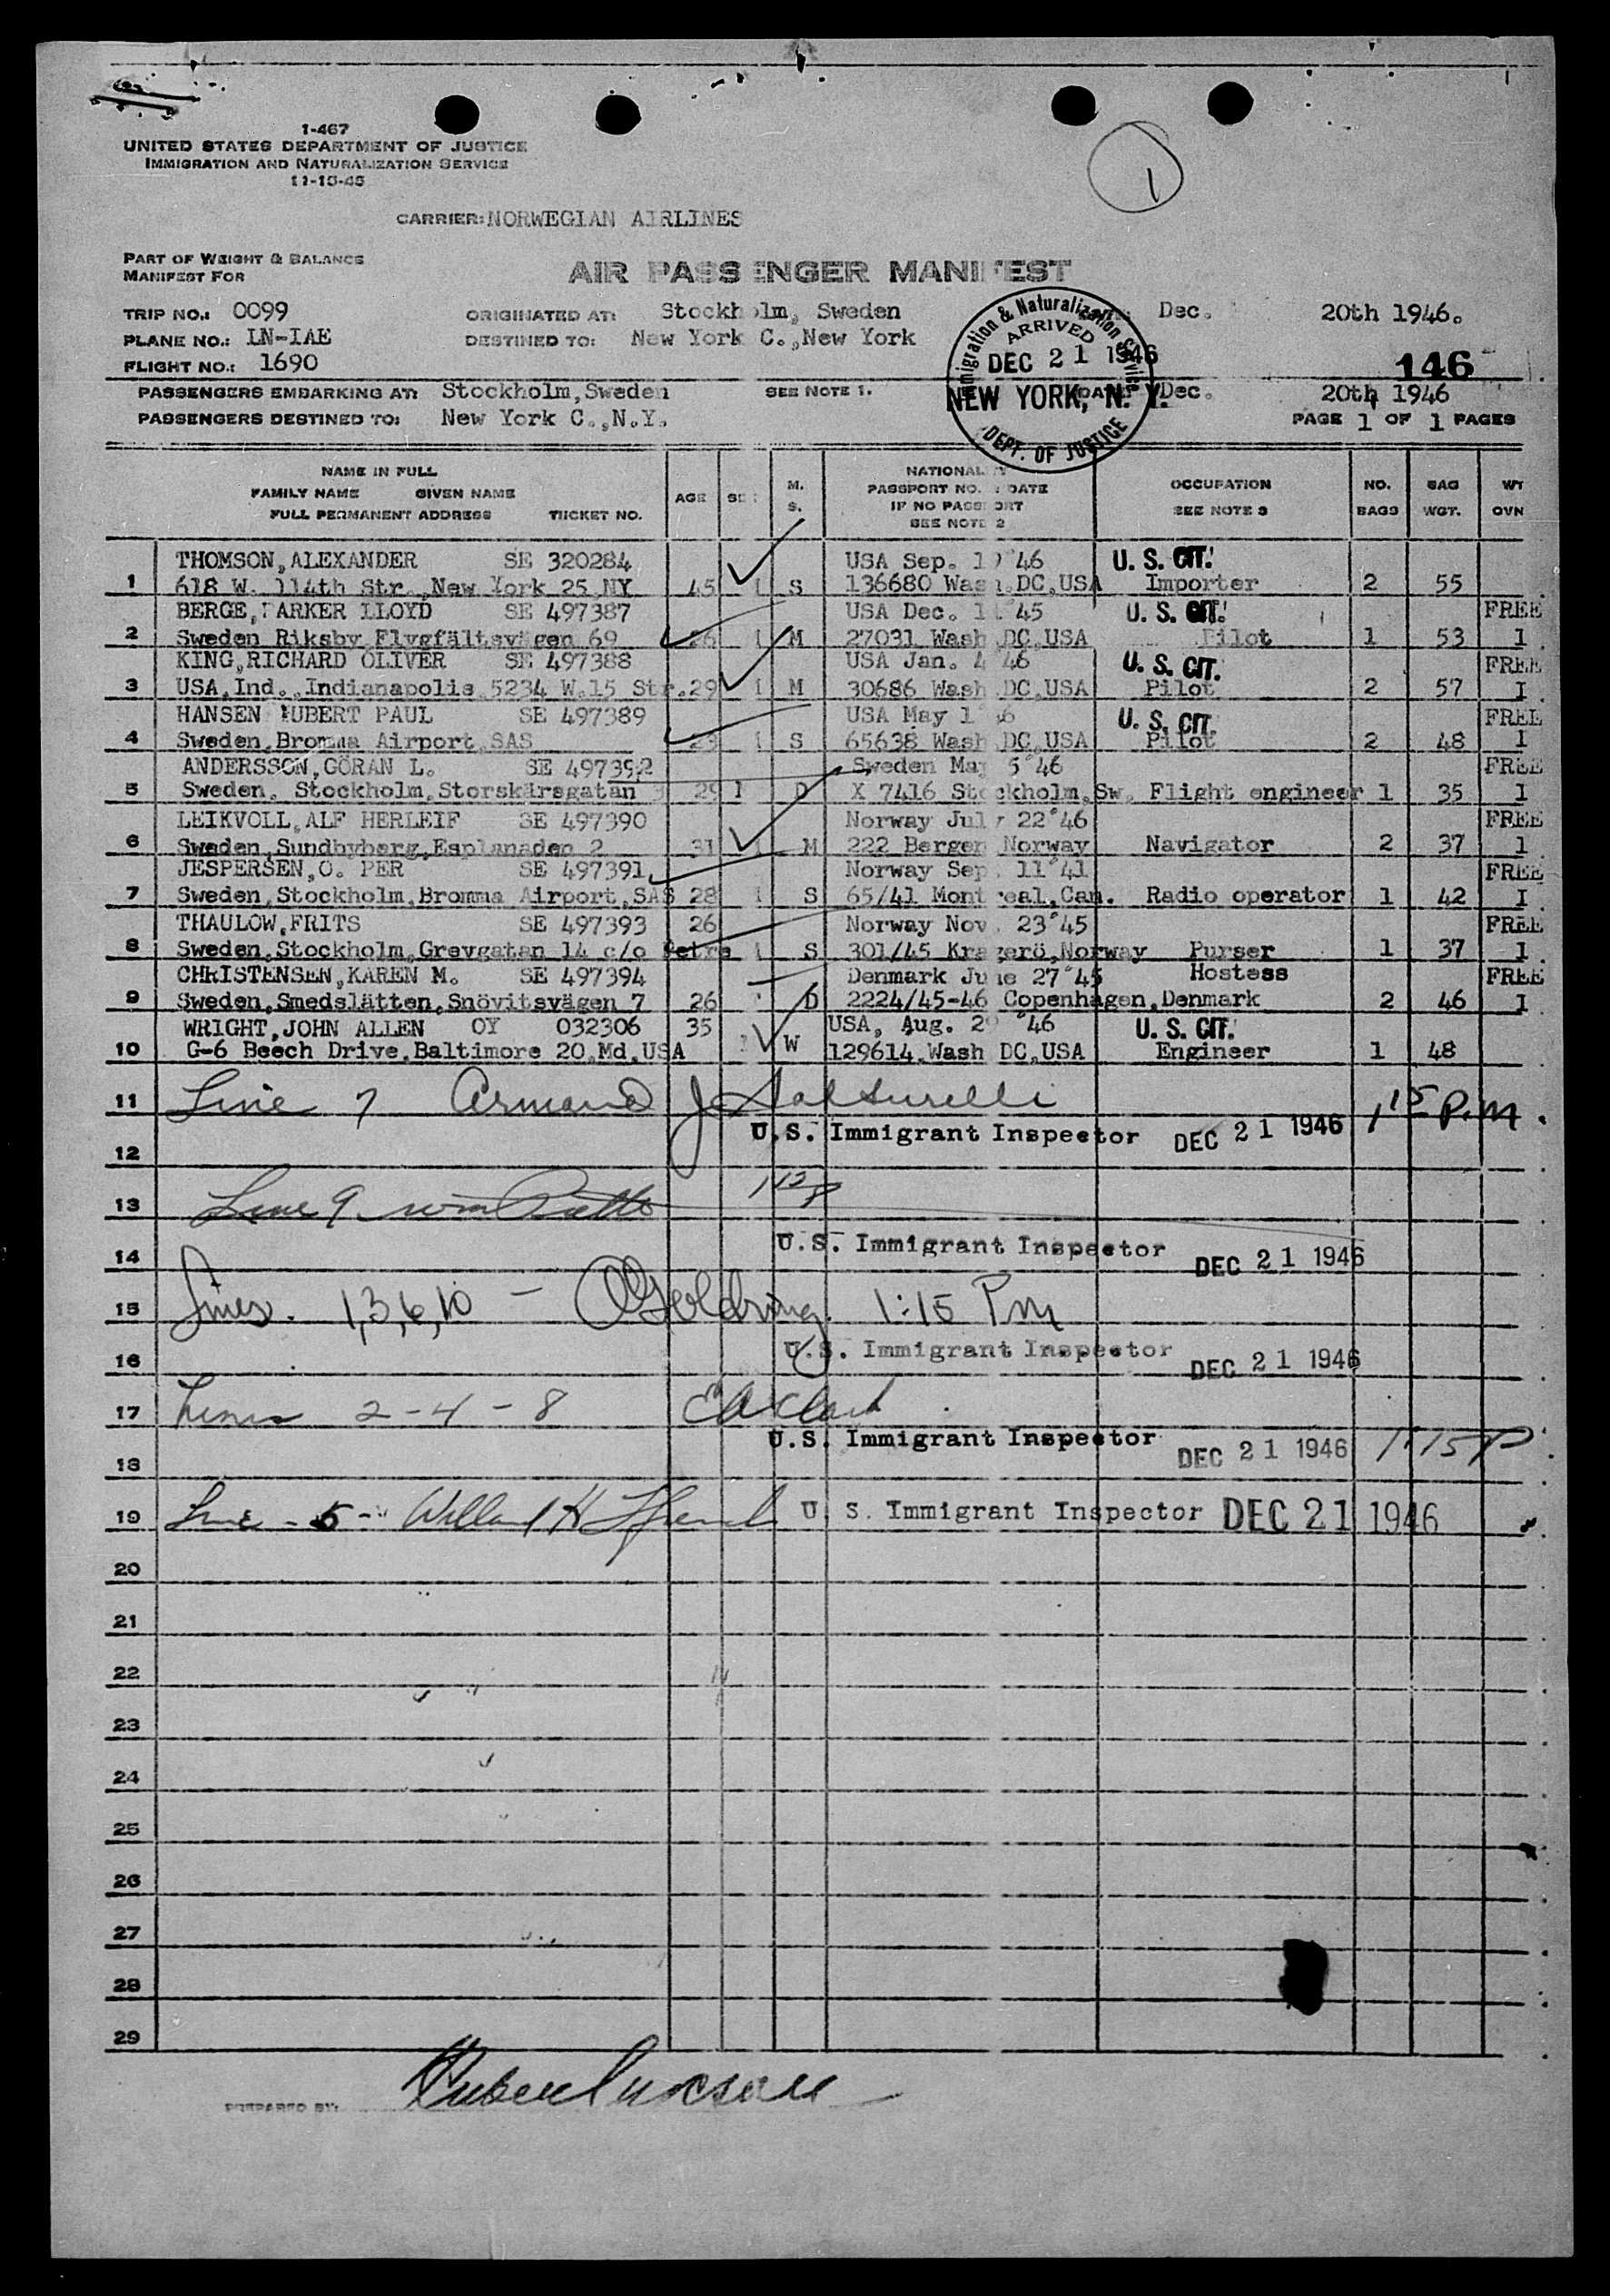 1
1-467
UNITED STATES DEPARTMENT OF JUSTICE
IMMIGRATION AND NATURALIZATION SERVICE
11-15-45
CARRIER: NORWEGIAN AIRLINES
PART OF WEIGHT & BALANCE
MANIFEST FOR
AIR PASSENGER MANIFEST
TRIP NO.: 0099 ORIGINATED AT: Stockholm, Sweden Dec. 20th 1946.
PLANE NO.: LN-IAE DESTINED TO: New York C.,New York
FLIGHT NO.: 1690 146
Immigration & Naturalization Service
ARRIVED
DEC 21 1946
NEW YORK, N. Y.
DEPT. OF JUSTICE
PASSENGERS EMBARKING AT: Stockholm,Sweden SEE NOTE 1. DATE Dec. 20th 1946
PASSENGERS DESTINED TO: New York C.,N.Y. PAGE 1 OF 1 PAGES
NAME IN FULL
FAMILY NAME GIVEN NAME
FULL PERMANENT ADDRESS TICKET NO.
AGE SEX M. S. NATIONALITY
PASSPORT NO. & DATE
IF NO PASSPORT
SEE NOTE 2
OCCUPATION
SEE NOTE 3
NO. BAGS
BAG WGT.
WT OVN
THOMSON,ALEXANDER SE 320284 USA Sep. 46 U. S. CIT.
1 618 W. 114th Str.,New York 25,NY 45 S 136680 Wash.DC,USA Importer 2 55
BERGE,PARKER LLOYD SE 497387 USA Dec. 45 U. S. CIT. FREE
2 Sweden Riksby Flygfältsvägen 69 26 M 27031 Wash DC,USA Pilot 1 53 1
KING,RICHARD OLIVER SE 497388 USA Jan. 4 46 U. S. CIT. FREE
3 USA,Ind.,Indianapolis 5234 W.15 Str. 29 M 30686 Wash DC,USA Pilot 2 57 1
HANSEN HUBERT PAUL SE 497389 USA May 46 U. S. CIT. FREE
4 Sweden,Bromma Airport,SAS 23 S 65638 Wash DC,USA Pilot 2 48 1
ANDERSSON,GÖRAN L. SE 497392 Sweden May 5 46 FREE
5 Sweden, Stockholm,Storskärsgatan 29 1 D X 7416 Stockholm,Sw. Flight engineer 1 35 1
LEIKVOLL,ALF HERLEIF SE 497390 Norway July 22 46 FREE
6 Sweden,Sundbyberg,Esplanaden 2 31 M 222 Bergen Norway Navigator 2 37 1
JESPERSEN,O. PER SE 497391 Norway Sep. 11 41 FREE
7 Sweden,Stockholm,Bromma Airport,SAS 28 S 65/41 Montreal,Can. Radio operator 1 42 1
THAULOW,FRITS SE 497393 26 Norway Nov. 23 45 FREE
8 Sweden,Stockholm,Grevgatan 14 c/o Petre S 301/45 Kragerö,Norway Purser 1 37 1
CHRISTENSEN,KAREN M. SE 497394 Denmark June 27 45 Hostess FREE
9 Sweden,Smedslätten,Snövitsvägen 7 26 D 2224/45-46 Copenhagen,Denmark 2 46 1
WRIGHT,JOHN ALLEN OY 032306 35 USA, Aug. 46 U. S. CIT.
10 G-6 Beech Drive,Baltimore 20,Md,USA W 129614,Wash DC,USA Engineer 1 48
11 Line 7 Armand J
U.S. Immigrant Inspector DEC 21 1946 1 15 P.M.
12
13 Line 9
U.S. Immigrant Inspector DEC 21 1946
14
15 Lines. 1,3,6,10 - Goldring 1:15 Pm
U.S. Immigrant Inspector DEC 21 1946
16
17 Lines 2-4-8 EA Clark
U.S. Immigrant Inspector DEC 21 1946 1:15 P
18
19 Line - 5 - Willard H U S. Immigrant Inspector DEC 21 1946
20
21
22
23
24
25
26
27
28
29
PREPARED BY: